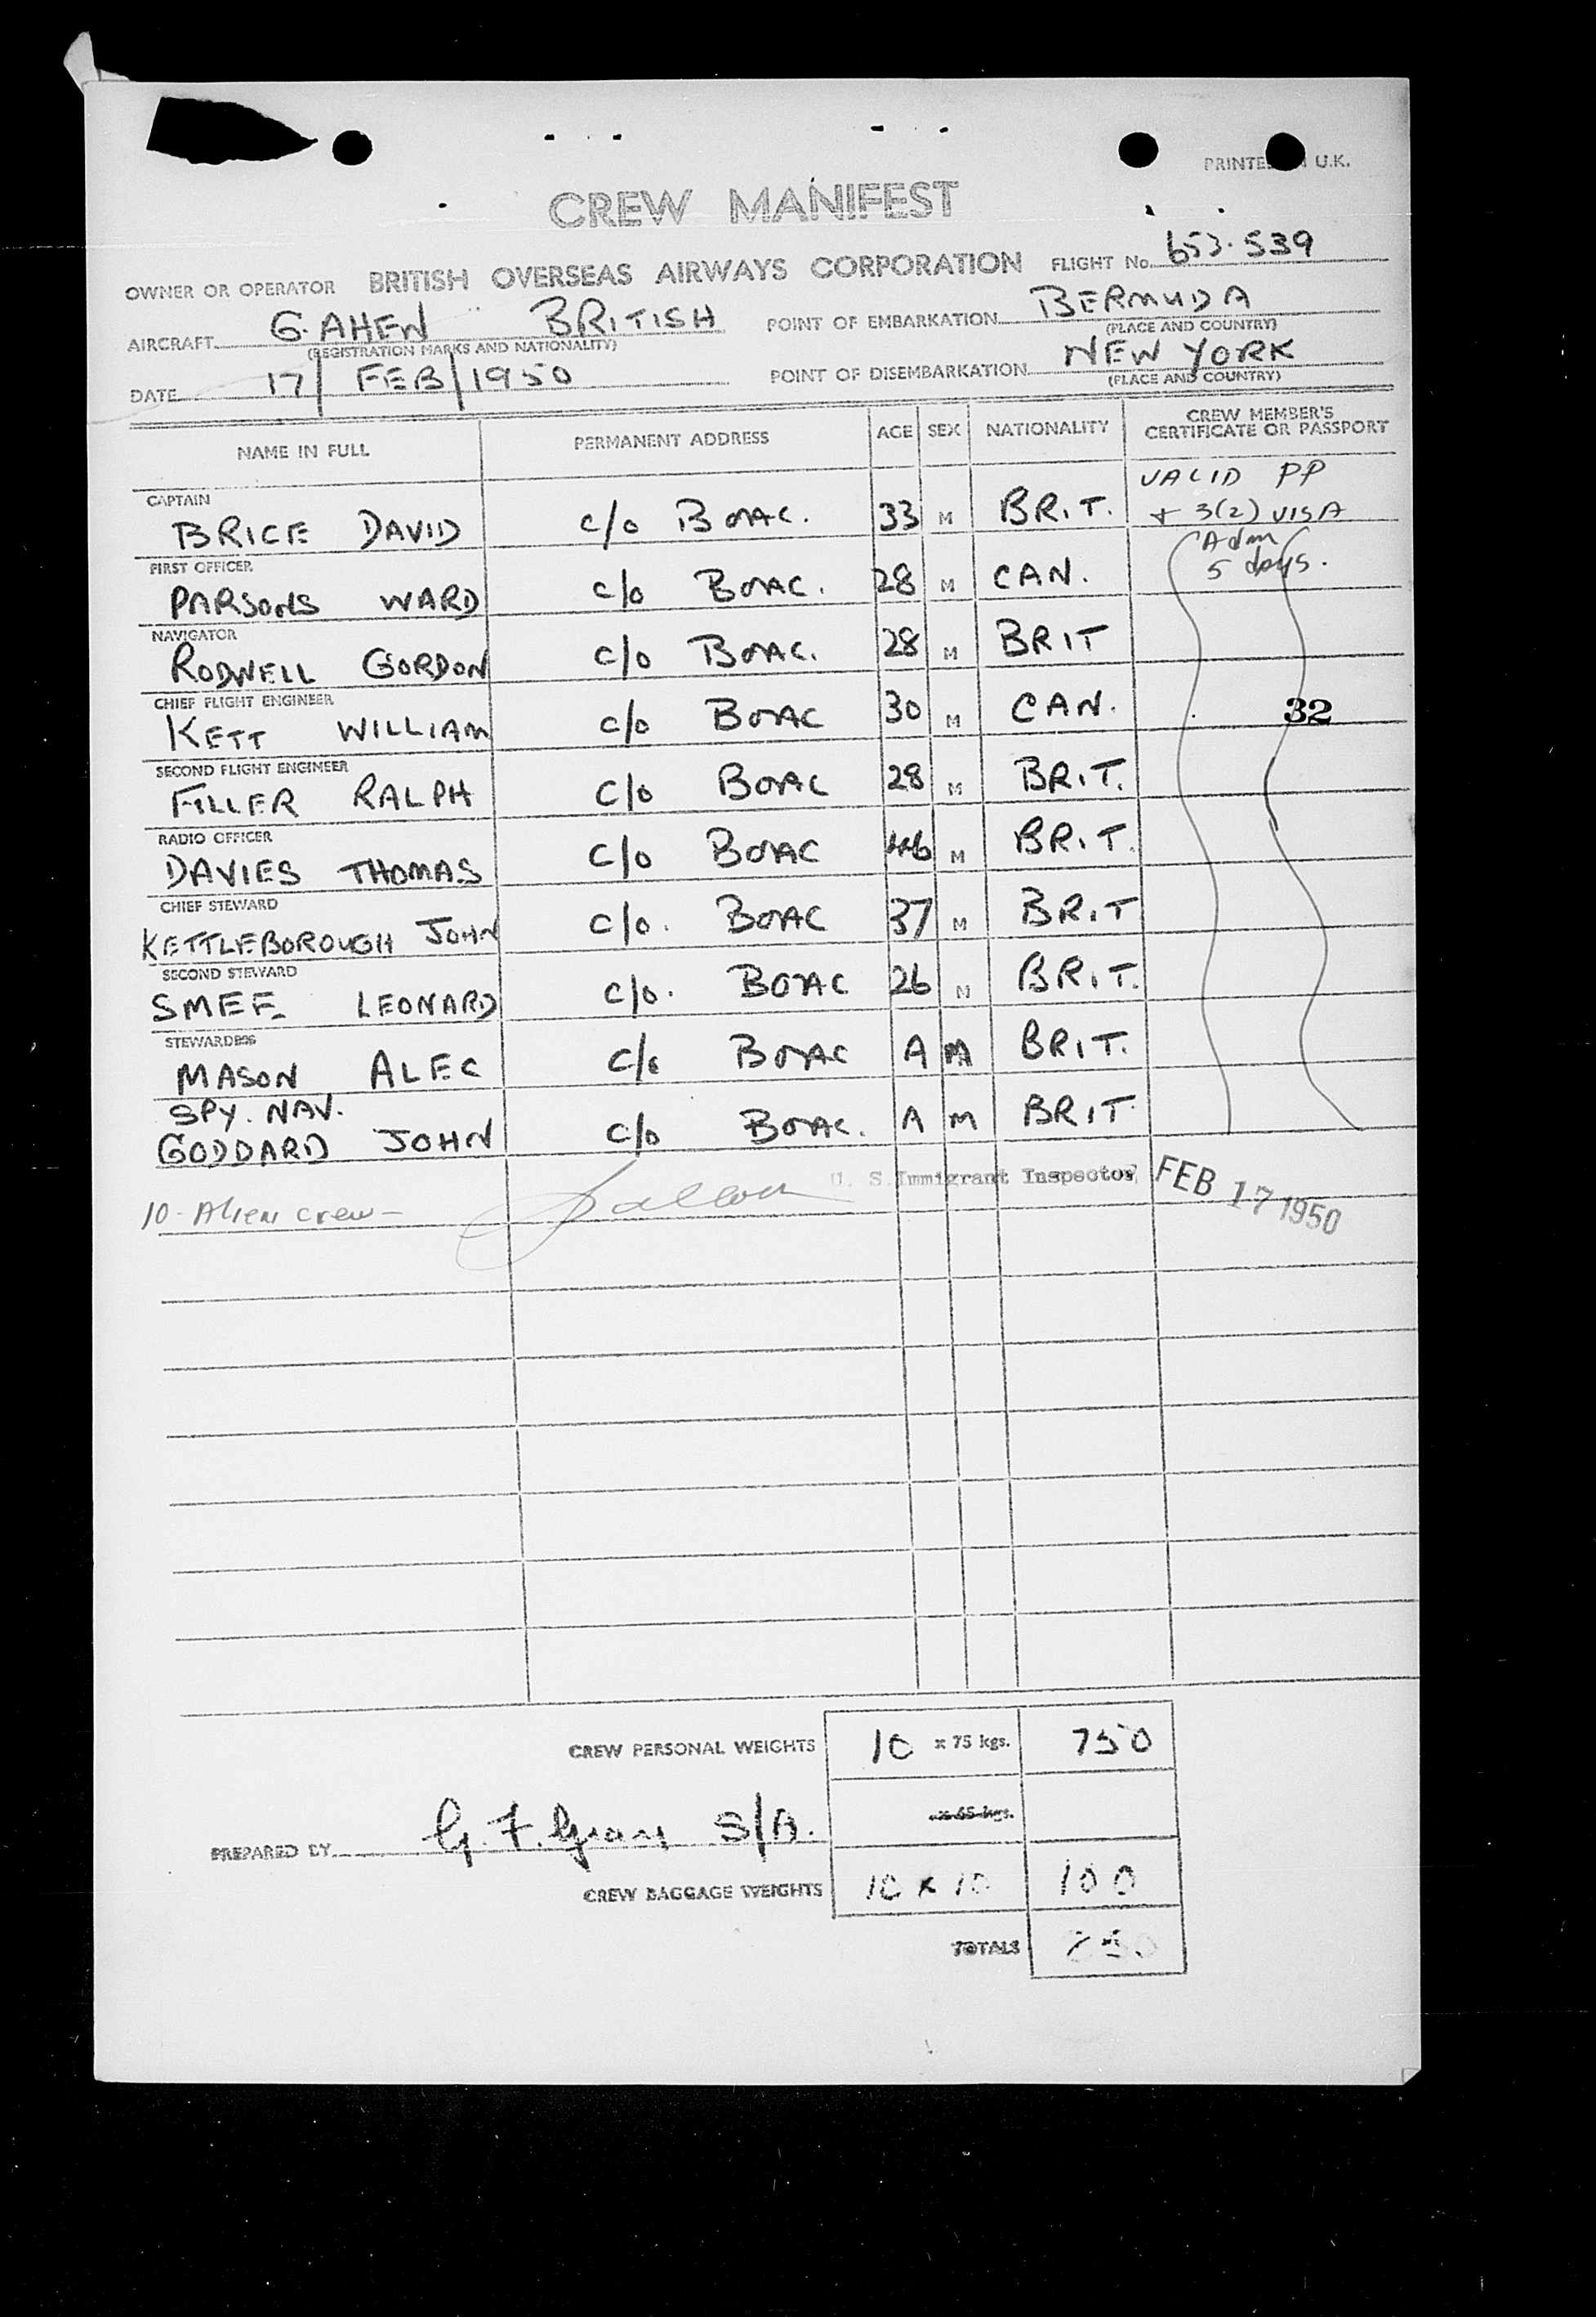 PRINTED IN U.K.
CREW MANIFEST
OWNER OR OPERATOR BRITISH OVERSEAS AIRWAYS CORPORATION FLIGHT No. 653.539
AIRCRAFT G.AHEN BRITISH POINT OF EMBARKATION BERMUDA
(REGISTRATION MARKS AND NATIONALITY) (PLACE AND COUNTRY)
DATE 17/ FEB/1950 POINT OF DISEMBARKATION NEW YORK
(PLACE AND COUNTRY)
NAME IN FULL PERMANENT ADDRESS AGE SEX NATIONALITY CREW MEMBER'S CERTIFICATE OR PASSPORT
CAPTAIN VALID PP
BRICE DAVID c/o BOAC. 33 M BRIT. + 3(2) VISA
FIRST OFFICER Adm
PARSONS WARD c/o BOAC. 28 M CAN. 5 days.
NAVIGATOR
RODWELL GORDON c/o BOAC. 28 M BRIT
CHIEF FLIGHT ENGINEER
KETT WILLIAM c/o BOAC 30 M CAN. 32
SECOND FLIGHT ENGINEER
FILLER RALPH c/o BOAC 28 M BRIT.
RADIO OFFICER
DAVIES THOMAS c/o BOAC 46 M BRIT.
CHIEF STEWARD
KETTLEBOROUGH JOHN c/o. BOAC 37 M BRIT
SECOND STEWARD
SMEE LEONARD c/o. BOAC 26 M BRIT.
STEWARDESS
MASON ALEC c/o BOAC A M BRIT.
SPY. NAV.
GODDARD JOHN c/o BOAC. A M BRIT
U. S. Immigrant Inspector FEB 17 1950
10 - Alien crew -
CREW PERSONAL WEIGHTS 10 x 75 kgs. 750
x 65 kgs.
PREPARED BY G. F. Gray S/A.
CREW BAGGAGE WEIGHTS 10 x 10 100
TOTALS 850